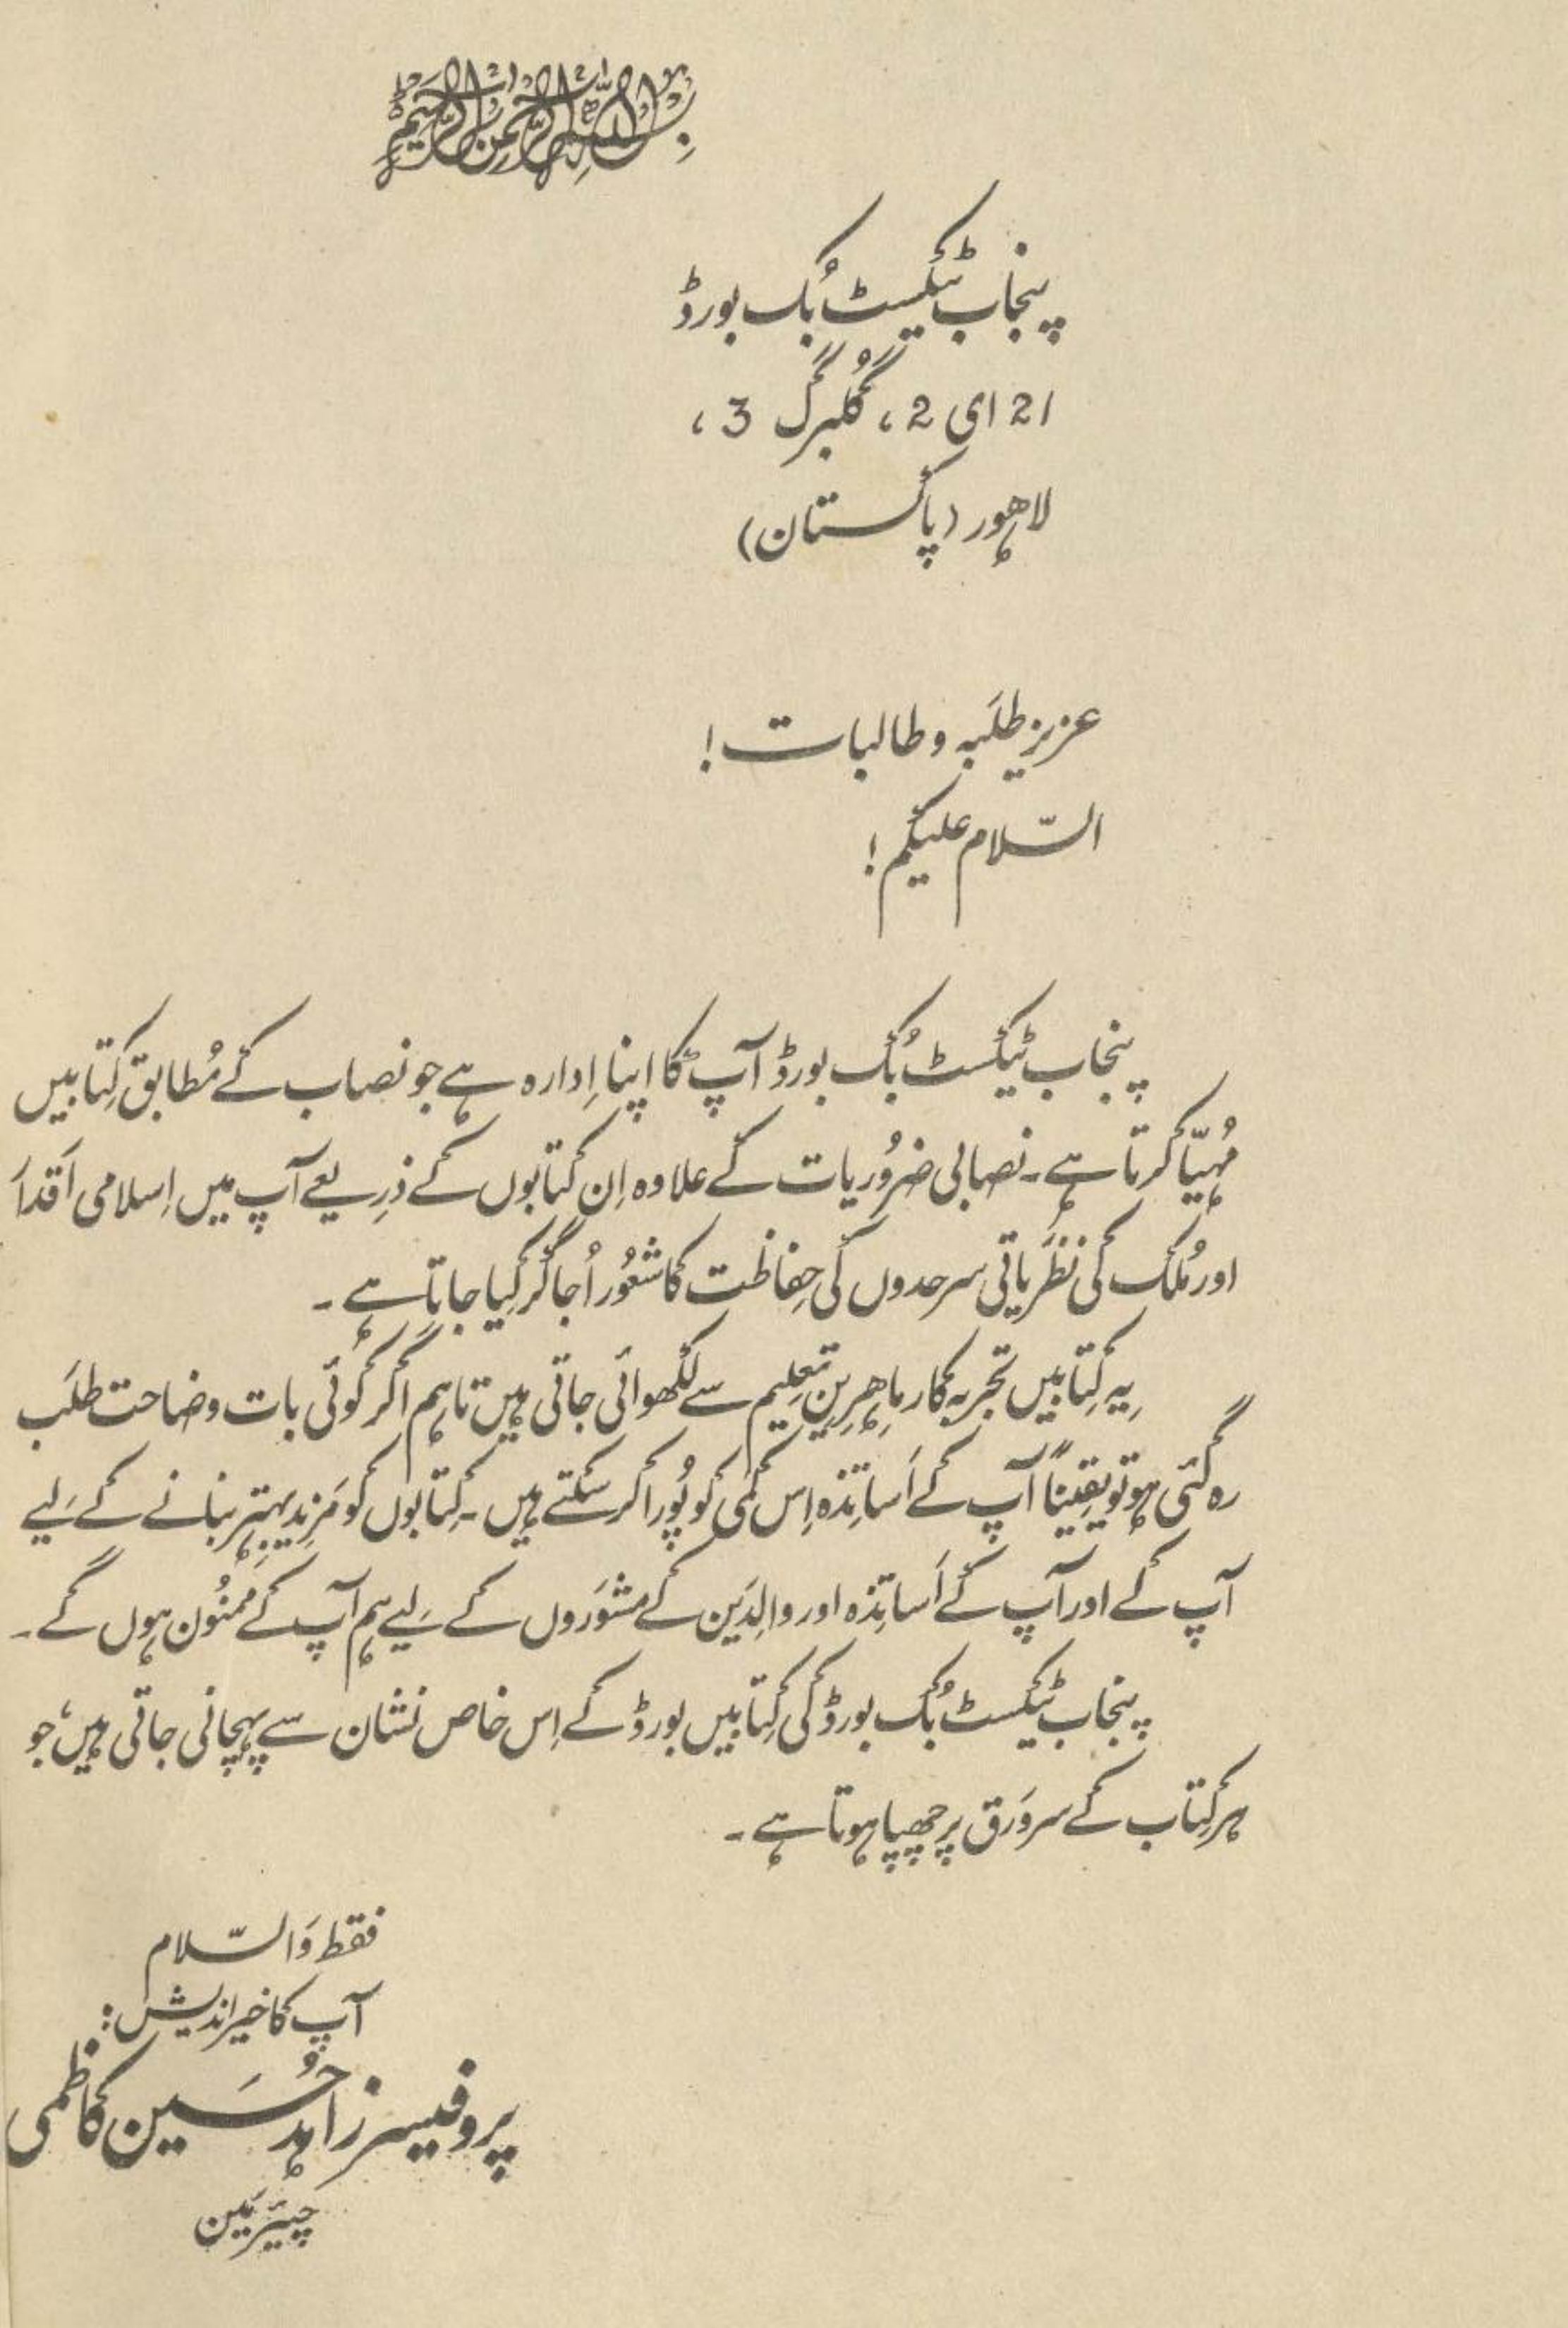 بِسْمِ اللهِ الرَّحْمٰنِ الرَّحِيْمِ
پنجاب ٹیکسٹ بُک بورڈ
21 ای 2، گُلبرگ 3،
لاہور (پاکستان)
عزیز طلَبہ و طالبات!
السّلام علیکم!
پنجاب ٹیکسٹ بُک بورڈ آپ کا اپنا اِدارہ ہے جو نصاب کے مُطابق کِتابیں
مُہیّا کرتا ہے۔ نصابی ضرُوریات کے علاوہ اِن کِتابوں کے ذرِیعے آپ میں اِسلامی اَقدار
اور مُلک کی نظَریاتی سرحدوں کی حِفاظت کا شعُور اُجاگر کِیا جاتا ہے۔
یہ کِتابیں تجربہ کار ماہِرینِ تعلِیم سے لکھوائی جاتی ہیں تاہم اگر کوئی بات وضاحت طلَب
رہ گئی ہو تو یقیناً آپ کے اَساتِذہ اِس کمی کو پُورا کر سکتے ہیں۔ کِتابوں کو مَزِید بہتر بنانے کے لیے
آپ کے اور آپ کے اَساتِذہ اور والِدَین کے مشوَروں کے لیے ہم آپ کے ممنُون ہوں گے۔
پنجاب ٹیکسٹ بُک بورڈ کی کِتابیں بورڈ کے اِس خاص نشان سے پہچانی جاتی ہیں، جو
ہر کِتاب کے سرورَق پر چھپا ہوتا ہے۔
فقط وَالسّلام
آپ کا خیراندیش:
پروفیسر زاہد حُسَین کاظمی
چیئرمَین